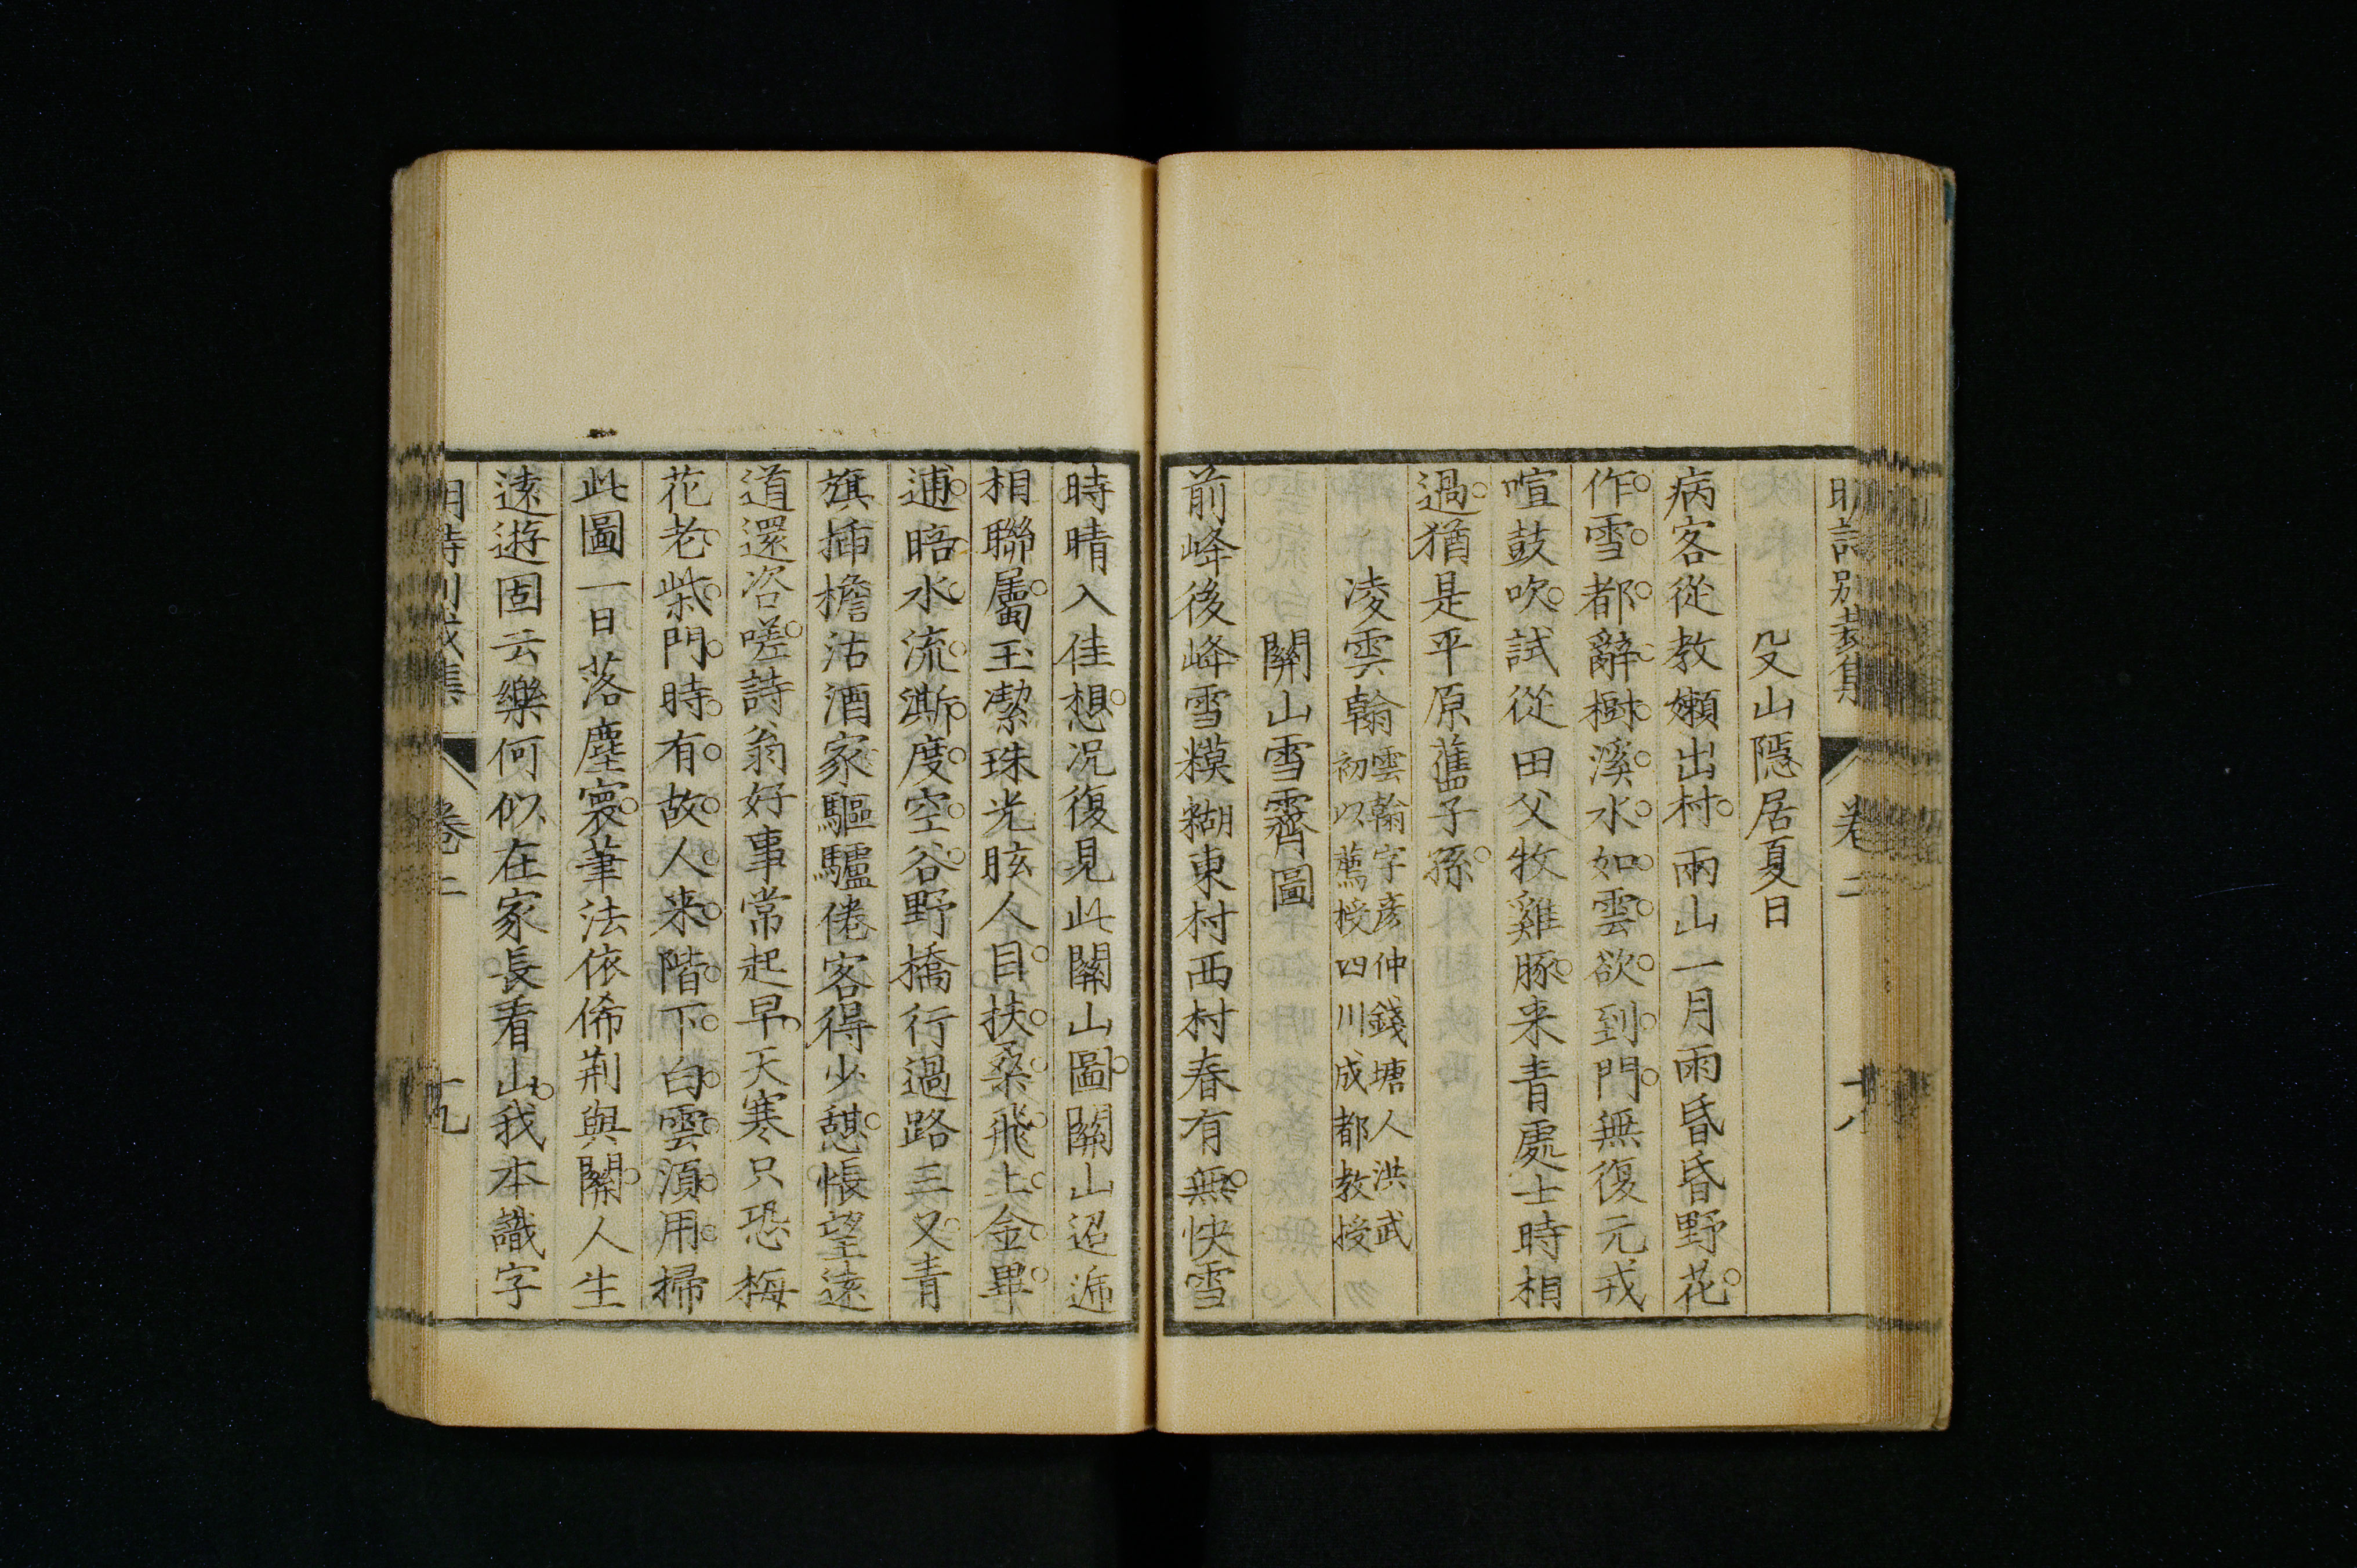 殳山隱居夏日
病客從教嬾出村兩山一月雨昏昏野花
作雪都辭樹溪水如雲欲到門無復元戎
喧鼓吹試從田父牧雞豚来青處士時相
過猶是平原舊子孫
凌雲翰雲翰字彦仲錢塘人洪武
初以薦授四川成都教授
關山雪霽圖
前峰後峰雪糢糊東村西村春有無快雪
時晴入佳想况復見此關山圖關山迢遞
相聯屬玉潔珠光眩人目扶桑飛上金畢
逋晤水流澌度空谷野橋行過路三叉青
旗插檐沽酒家驅驢倦客得少憩悵望遠
道還咨嗟詩翁好事常起早天寒只恐梅
花老柴門時有故人来階下白雲湏用掃
此圖一日落塵寰筆法依俙荆與關人生
遠遊固云樂何似在家長看山我本識字
卷二
十九